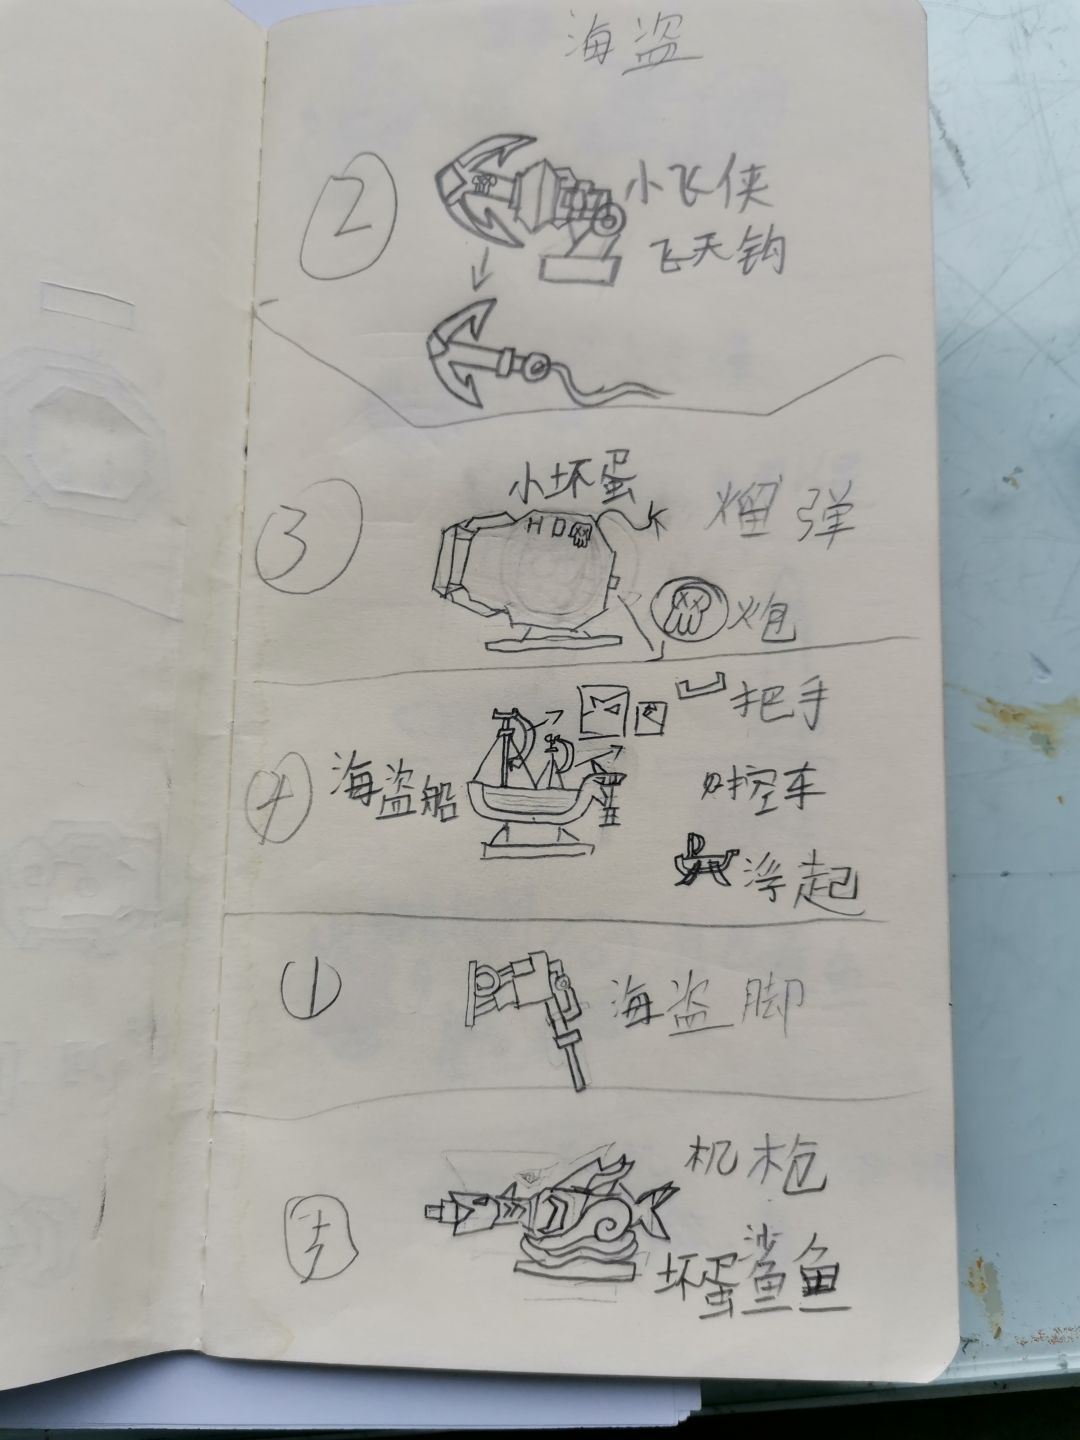 海盗
2
小飞侠
飞天钩
3
小坏蛋
HD
K
熘弹
炮
4
海盗船
把手
时控车
浮起
1
海盗脚
机枪
坏蛋鲨鱼